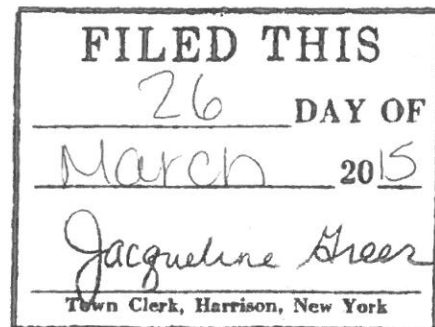 FILED THIS
26 DAY OF
March 2015
Jacqueline Greer
Town Clerk, Harrison, New York